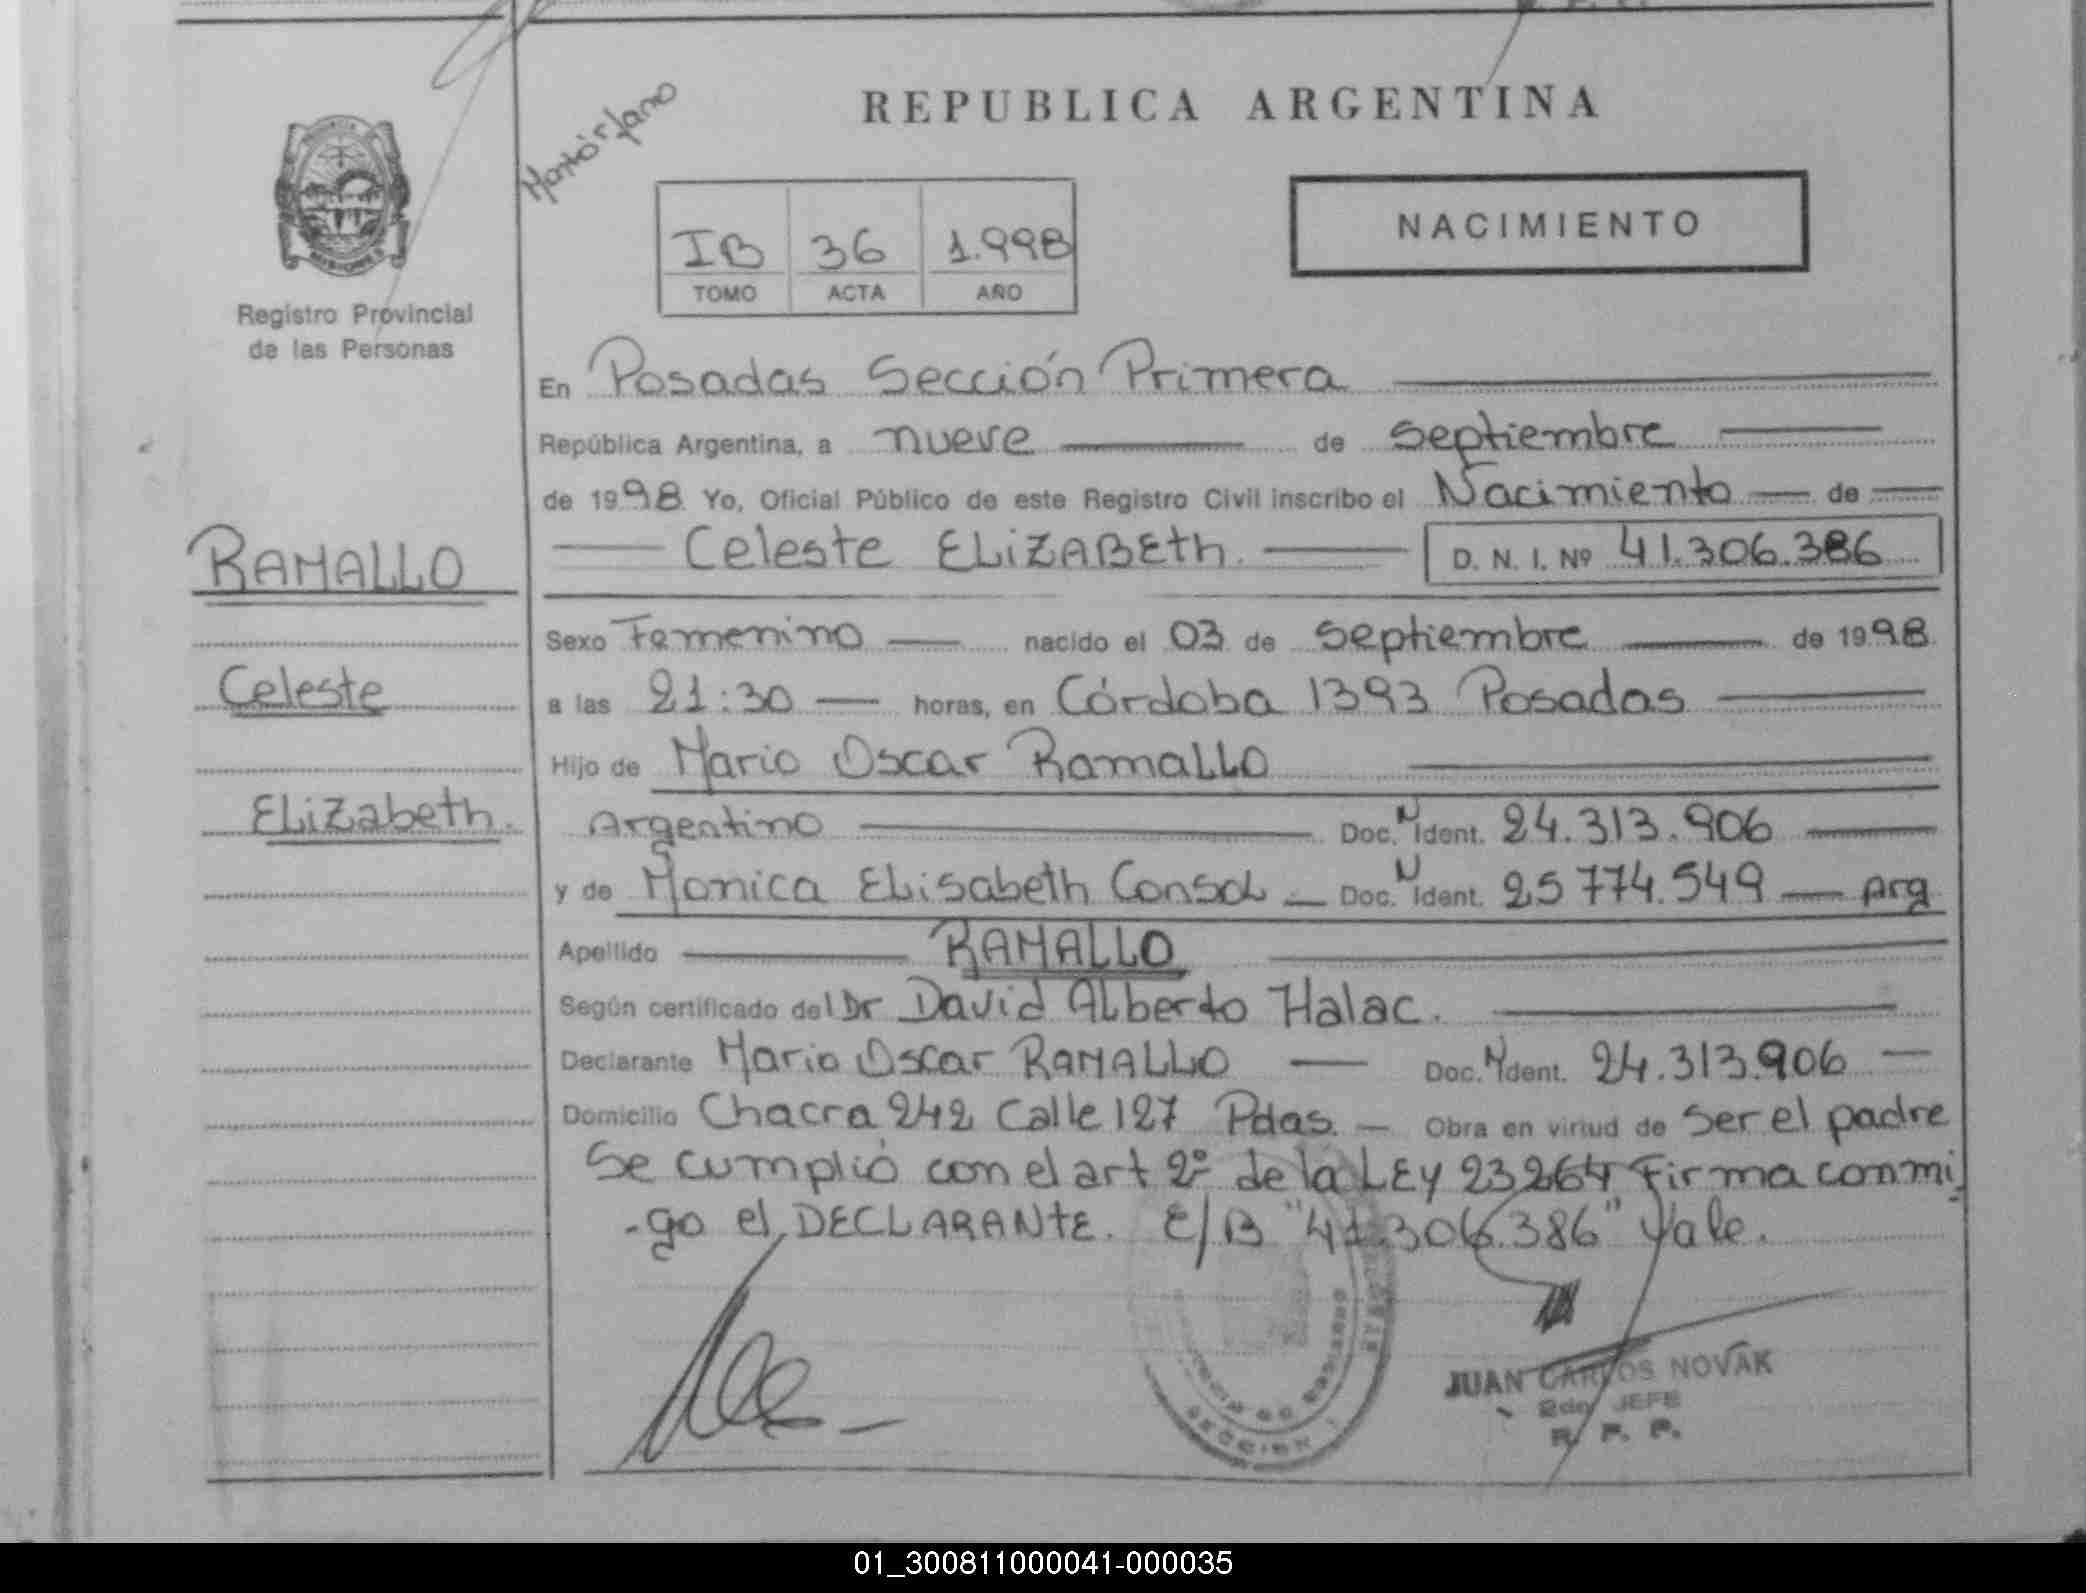 REPUBLICA ARGENTINA
NACIMIENTO
IB 36 1.998
TOMO ACTA AÑO
Registro Provincial
de las Personas
En Posadas Sección Primera
República Argentina, a nueve de septiembre
de 1998 Yo, Oficial Público de este Registro Civil inscribo el Nacimiento de
Celeste ELiZABEth. D. N. I. Nº 41.306.386
RAMALLO
Celeste
ELiZabeth.
Sexo Femenino nacido el 03 de septiembre de 1998
a las 21:30 horas, en Córdoba 1393 Posadas
Hijo de Mario Oscar RamaLLO
Argentino Doc. N Ident. 24.313.906
y de Monica ELisabeth ConsoL Doc. N Ident. 25774.549 Arg
Apellido RAMALLO
Según certificado del Dr David ALberto Halac.
Declarante Mario Oscar RAMALLO Doc. N Ident. 24.313.906
Domicilio Chacra 242 Calle 127 Pdas. Obra en virtud de ser el padre
Se cumplió con el art 2º de la LEy 23264 Firma conmi
-go el DECLARANtE. E/B "41.306.386" Vale.
SECCION 1
JUAN CARLOS NOVAK
2do JEFE
R. P. P.
01_300811000041-000035